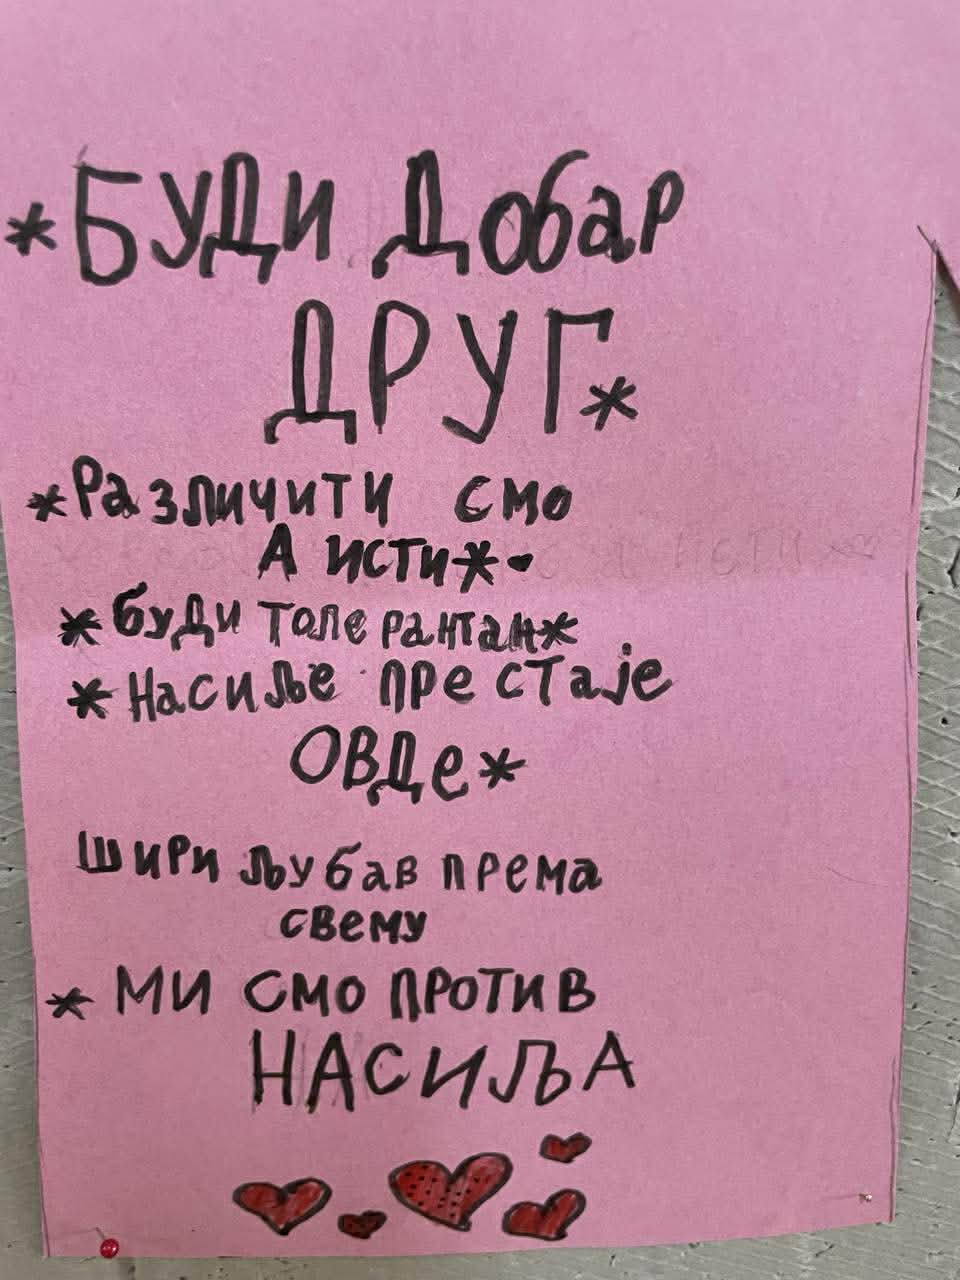 *Буди Добар
ДРУГ*
*Различити смо
А исти*
*буди толерантан*
*Насиље престаје
ОВДе*
Шири љубав према
свему
* МИ СМО ПРОТИВ
НАСИЉА